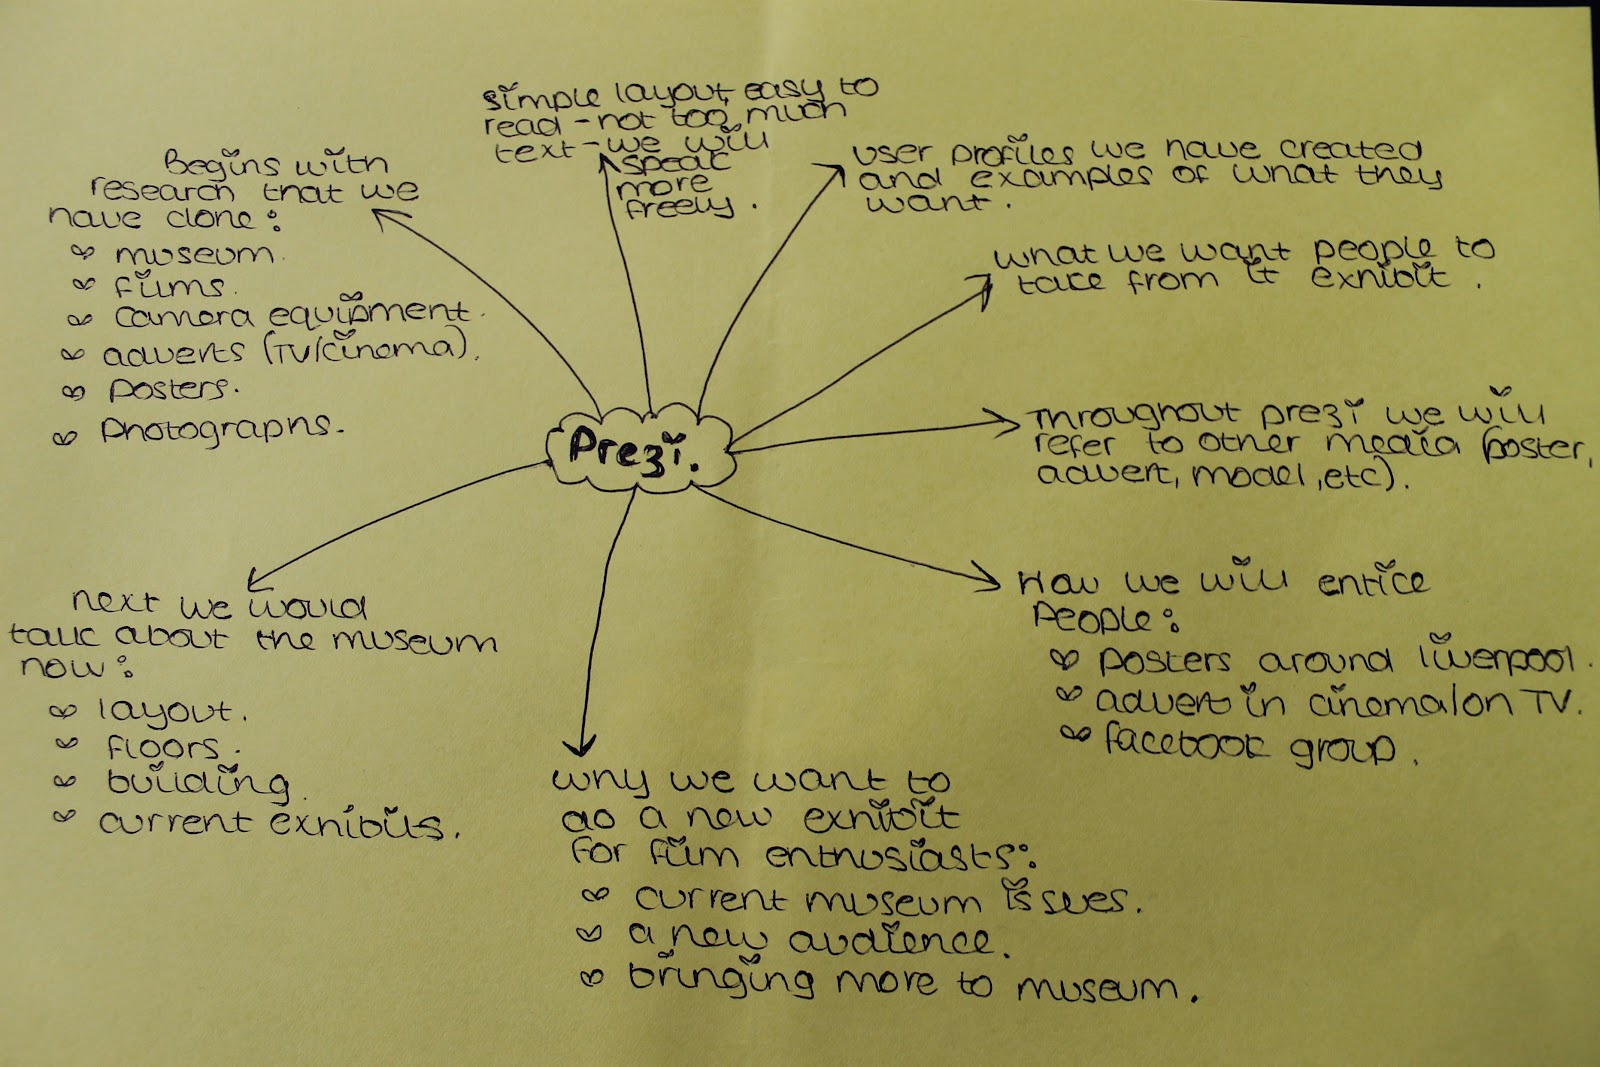 Prezi.
Begins with
research that we
have done:
museum.
films.
camera equipment.
adverts (TV/cinema).
posters.
photographs.
simple layout, easy to
read - not too much
text - we will
speak
more
freely.
user profiles we have created
and examples of what they
want.
what we want people to
take from it exhibit.
Throughout prezi we will
refer to other media (poster,
advert, model, etc).
How we will entice
people:
posters around liverpool.
advert in cinema/on TV.
facebook group.
why we want to
do a new exhibit
for film enthusiasts:
current museum issues.
a new audience.
bringing more to museum.
next we would
talk about the museum
now:
layout.
floors.
building.
current exhibits.